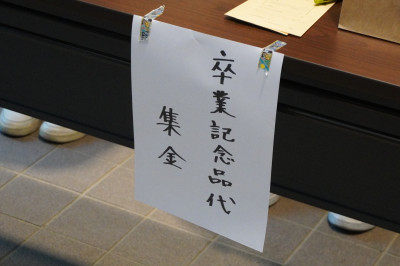 卒業記念品代
集金